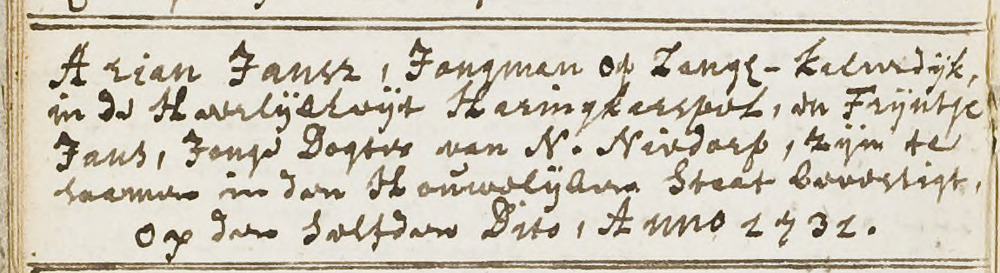 Arian Jansz, Jongman op Lange-Kalverdÿk,
in de Heerlÿkheÿt Haringkarspel, en Trÿntje
Jans, Jonge Dogter van N. Niedorp, zÿn te
saamen in den Houwelÿken Staat bevestigt,
op den selfden Dito, Anno 1731.